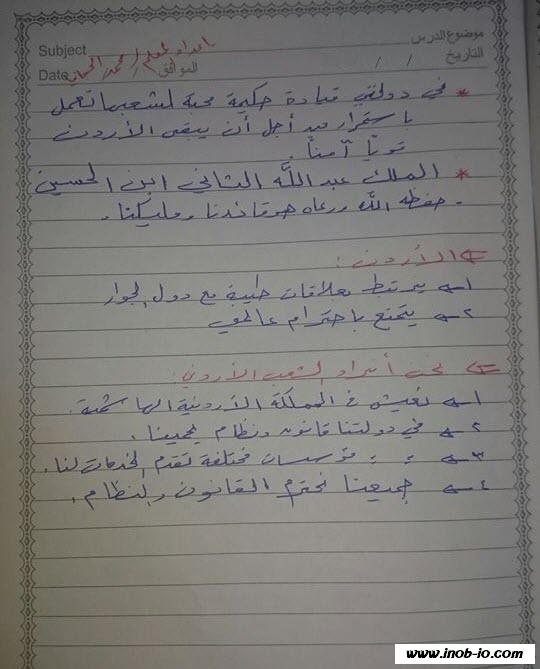 موضوع الدرس
Subject
التاريخ / /
الموافق
Date
إعداد المعلم / محمد
* في دولتي قيادة حكيمة محبة لشعبها تعمل
باستمرار من أجل أن يبقى الأردن
قويًا آمنًا.
* الملك عبد الله الثاني ابن الحسين
حفظه الله ورعاه هو قائدنا ومليكنا.
الأردن :
١- يرتبط بعلاقات طيبة مع دول الجوار
٢- يتمتع باحترام عالمي
نحن أفراد الشعب الأردني :
١- نعيش في المملكة الأردنية الهاشمية.
٢- في دولتنا قانون ونظام يحمينا.
٣- = = مؤسسات مختلفة تقدم الخدمات لنا.
٤- جميعنا نحترم القانون والنظام.
www.inob-io.com